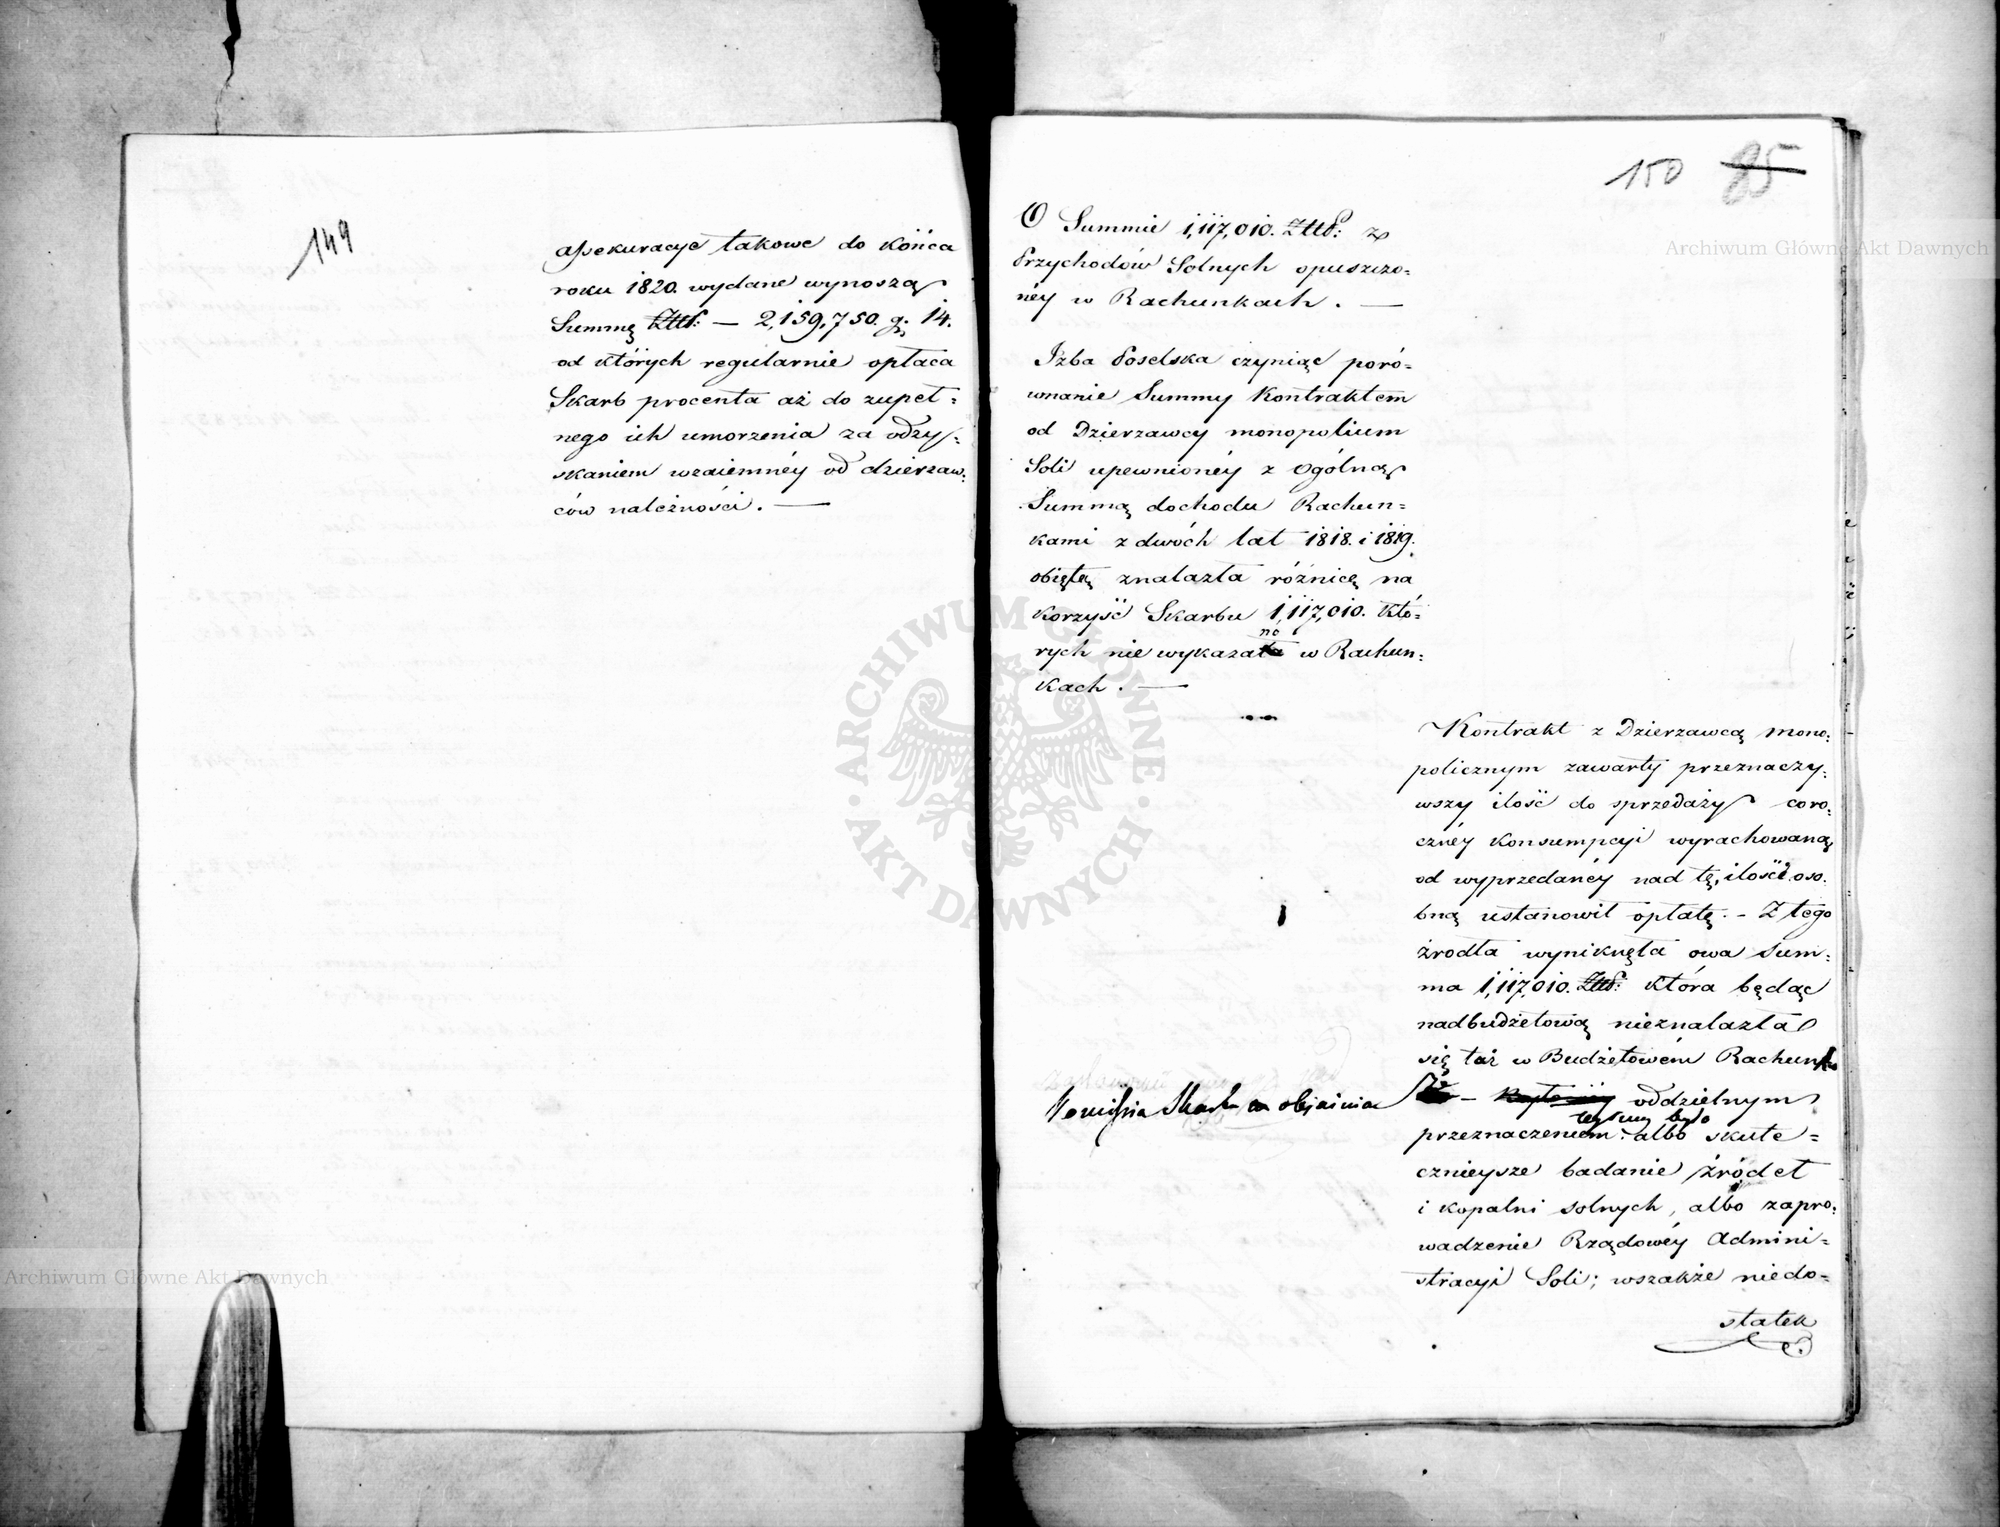 149
assekuracye takowe do końca
roku 1820. wydane wynoszą
Summę Złtt: — 2,159,750. g: 14.
od których regularnie opłaca
Skarb procenta aż do zupeł=
nego ich umorzenia za odzy=
skaniem wzaiemnéy od dzierzaw=
ców należności. —
150 85
O Summie 1,117,010. Złtt: z
Przychodów Solnych opuszczo=
néy w Rachunkach. —
Izba Poselska czyniąc poró=
wnanie Summy Kontraktem
od Dzierzawcy monopolium
Soli upewnionéy z Ogólną
Summą dochodu Rachun=
kami z dwóch lat 1818. i 1819.
obiętą znalazła różnicę na
korzyść Skarbu 1,117,010. któ=
no
rych nie wykazała w Rachun=
kach. —
Kontrakt z Dzierzawcą mono=
policznym zawarty przeznaczy=
wszy ilość do sprzedaży coro=
cznéy konsumpcyi wyrachowaną,
od wyprzedanéy nad tę ilość oso=
bną ustanowił opłatę. – Z tego
źrodła wyniknęła owa Sum=
ma 1,117,010. Złtt: która będąc
nadbudżetową nieznalazła
się też w Budżetowém Rachun
Kommissia Skarbu objaśnia
oddzielnym
było
przeznaczeniem: albo skute=
cznieysze badanie źródeł
i kopalni solnych, albo zapro=
wadzenie Rządowéy Admini=
stracyi Soli; wszakże niedo=
statek
Archiwum Główne Akt Dawnych
Archiwum Główne Akt Dawnych
ARCHIWUM GŁÓWNE AKT DAWNYCH